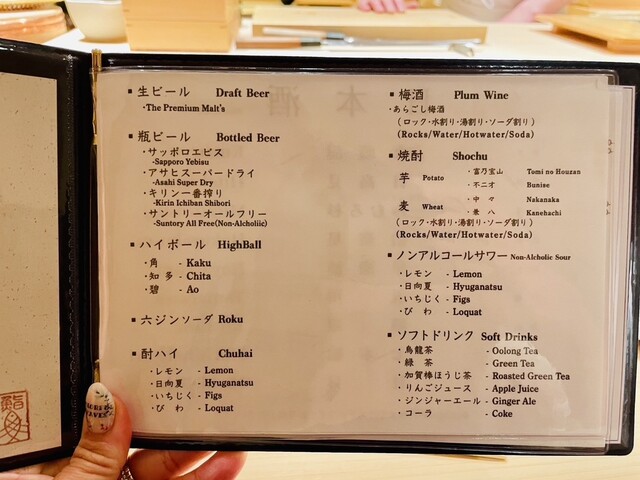 ▪ 生ビール Draft Beer
・The Premium Malt's
▪ 瓶ビール Bottled Beer
・サッポロエビス
-Sapporo Yebisu
・アサヒスーパードライ
-Asahi Super Dry
・キリン一番搾り
-Kirin Ichiban Shibori
・サントリーオールフリー
-Suntory All Free(Non-Alcholiic)
▪ ハイボール HighBall
・角 - Kaku
・知多 - Chita
・碧 - Ao
▪ 六ジンソーダ Roku
▪ 酎ハイ Chuhai
・レモン - Lemon
・日向夏 - Hyuganatsu
・いちじく - Figs
・びわ - Loquat
▪ 梅酒 Plum Wine
・あらごし梅酒
(ロック・水割り・湯割り・ソーダ割り)
(Rocks/Water/Hotwater/Soda)
▪ 焼酎 Shochu
芋 Potato ・富乃宝山 Tomi no Houzan
・不二才 Bunise
麦 Wheat ・中々 Nakanaka
・兼八 Kanehachi
(ロック・水割り・湯割り・ソーダ割り)
(Rocks/Water/Hotwater/Soda)
▪ ノンアルコールサワー Non-Alcholic Sour
・レモン - Lemon
・日向夏 - Hyuganatsu
・いちじく - Figs
・びわ - Loquat
▪ ソフトドリンク Soft Drinks
・烏龍茶 - Oolong Tea
・緑茶 - Green Tea
・加賀棒ほうじ茶 - Roasted Green Tea
・りんごジュース - Apple Juice
・ジンジャーエール - Ginger Ale
・コーラ - Coke